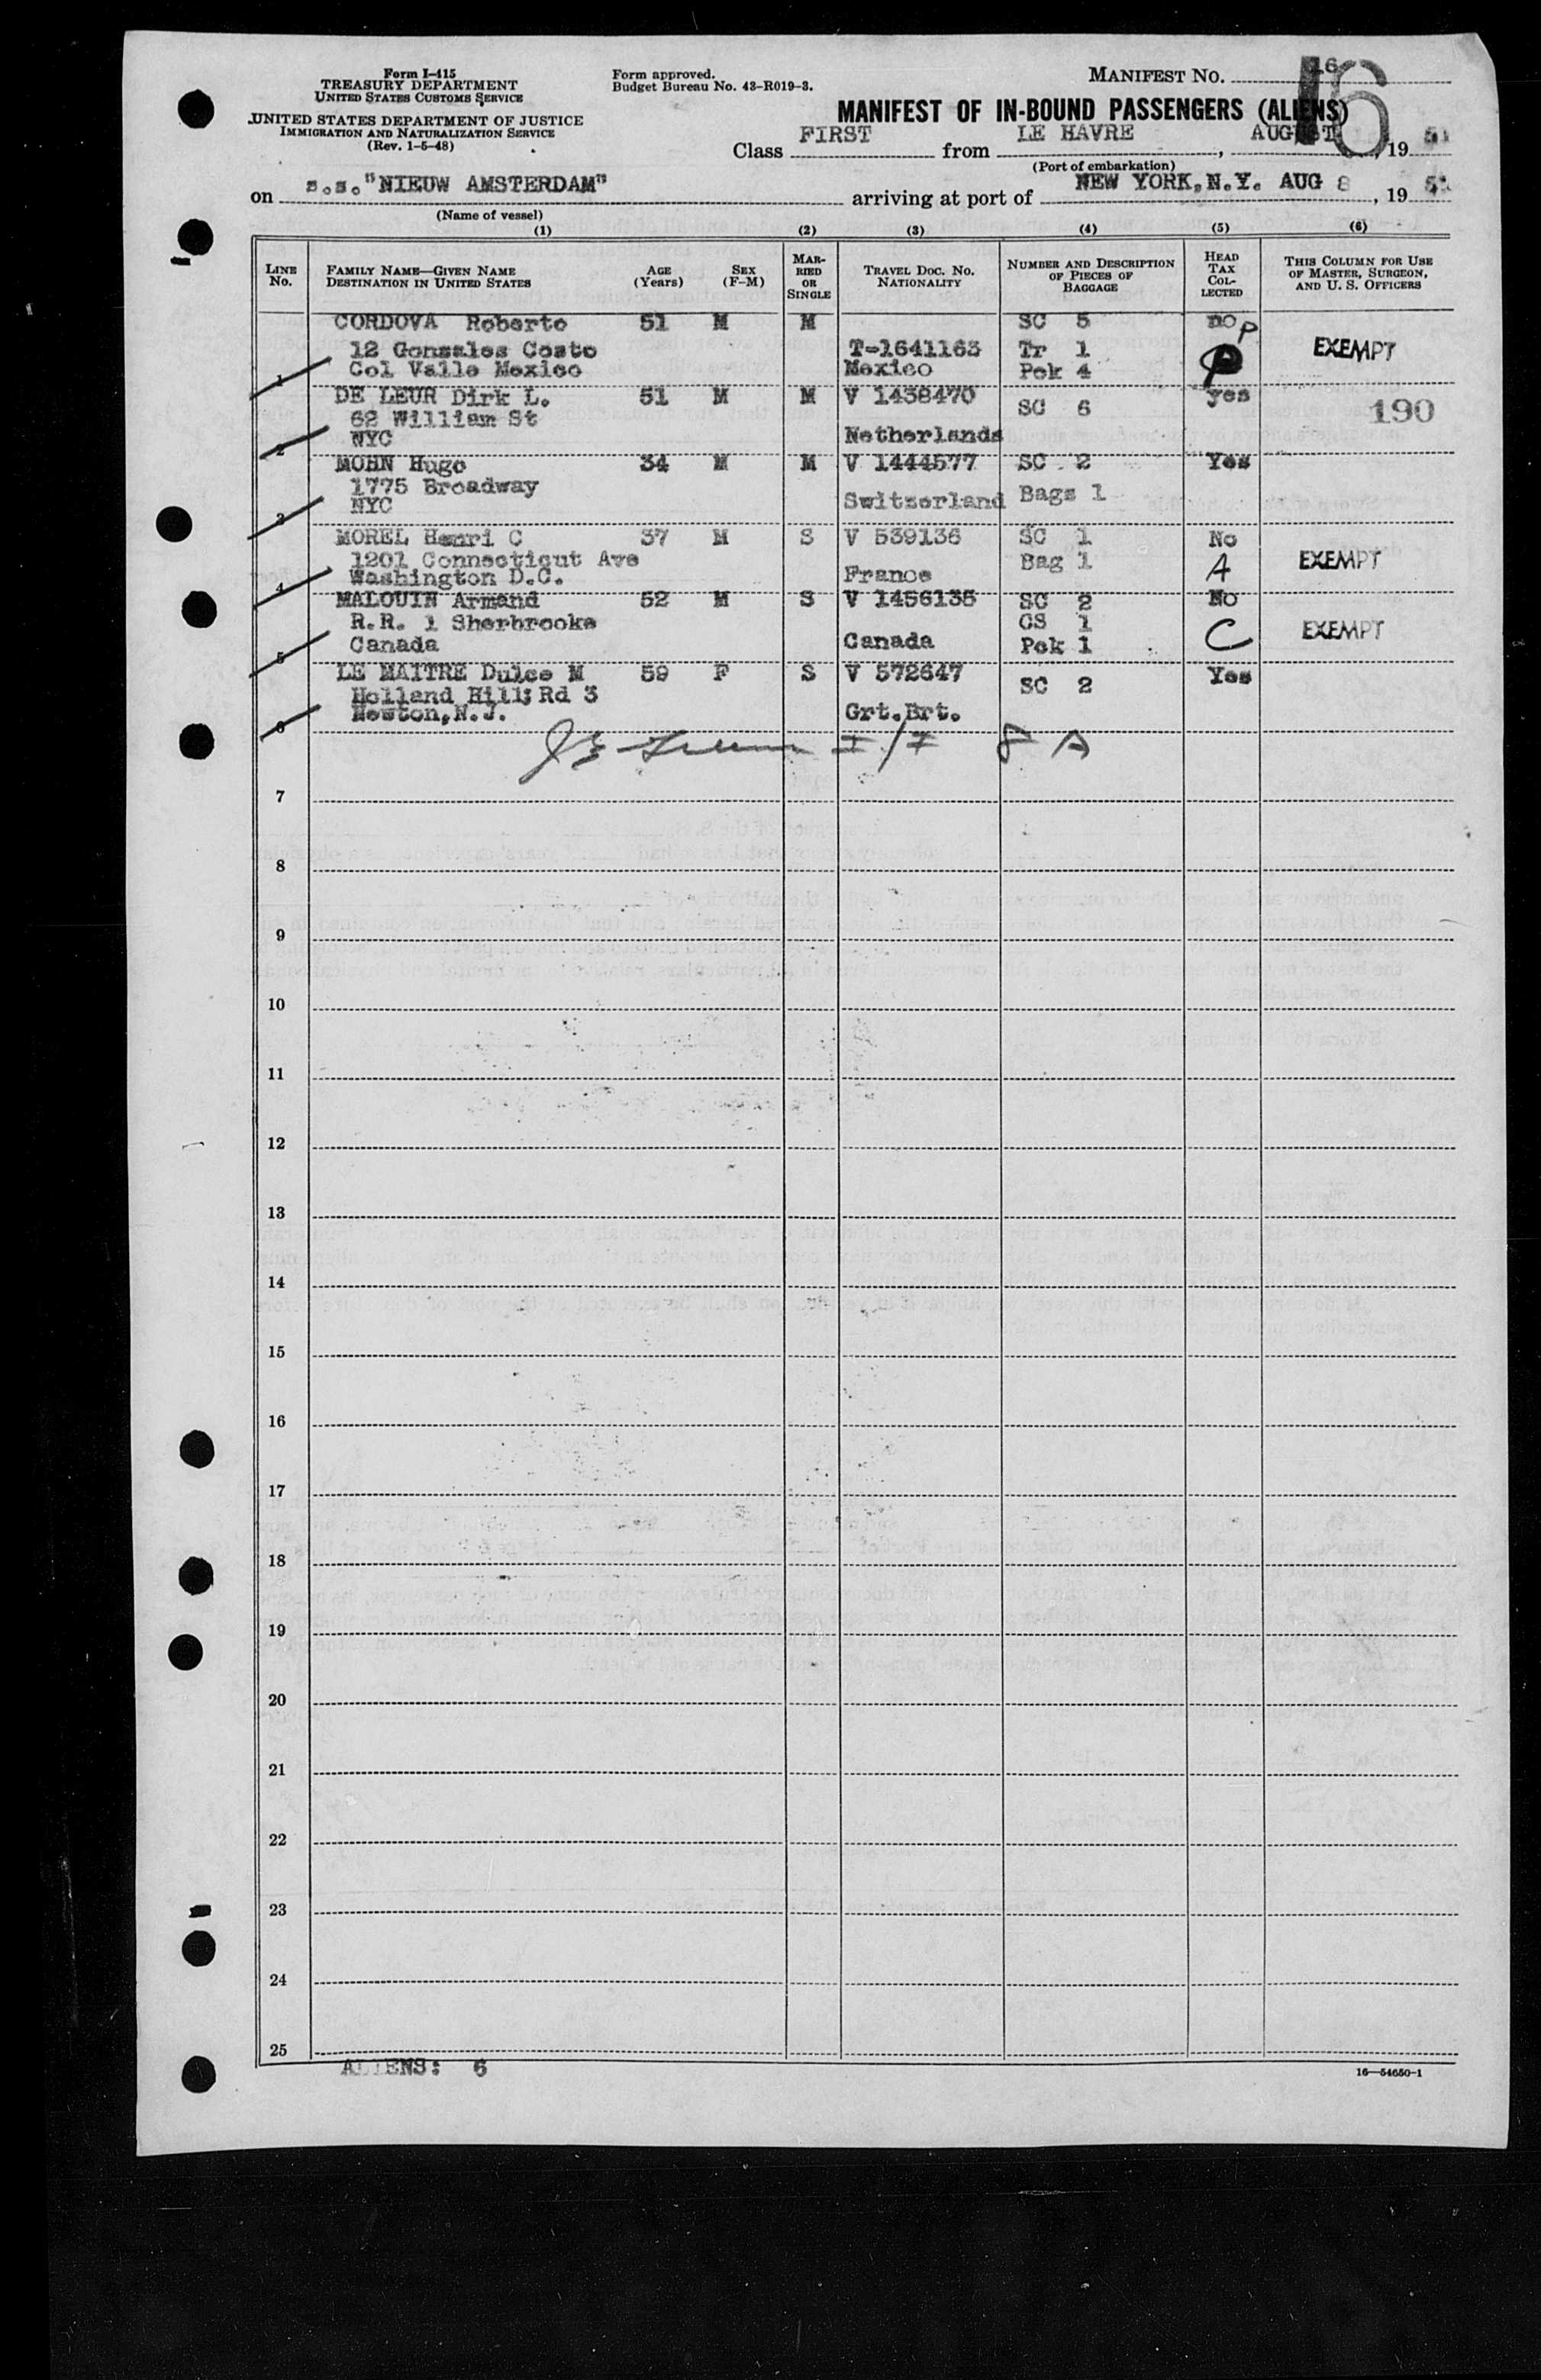 Form I-415
TREASURY DEPARTMENT
UNITED STATES CUSTOMS SERVICE
UNITED STATES DEPARTMENT OF JUSTICE
IMMIGRATION AND NATURALIZATION SERVICE
(Rev. 1-5-48)
Form approved.
Budget Bureau No. 43-R019-3.
MANIFEST No. 16
16
MANIFEST OF IN-BOUND PASSENGERS (ALIENS)
Class FIRST from LE HAVRE, AUGUST, 19 51
(Port of embarkation)
on s.s. "NIEUW AMSTERDAM" arriving at port of NEW YORK, N.Y. AUG 8, 19 51
(Name of vessel)
(1) (2) (3) (4) (5) (6)
LINE No. FAMILY NAME—GIVEN NAME DESTINATION IN UNITED STATES AGE (Years) SEX (F-M) MARRIED OR SINGLE TRAVEL DOC. NO. NATIONALITY NUMBER AND DESCRIPTION OF PIECES OF BAGGAGE HEAD TAX COLLECTED THIS COLUMN FOR USE OF MASTER, SURGEON, AND U. S. OFFICERS
CORDOVA Roberto 51 M M SC 5 no P
12 Gonzales Costo T-1641163 Tr 1 EXEMPT
1 Col Valle Mexico Mexico Pck 4
DE LEUR Dirk L. 51 M M V 1438470 SC 6 yes
62 William St 190
2 NYC Netherlands
MOHN Hugo 34 M M V 1444577 SC 2 Yes
1775 Broadway
3 NYC Switzerland Bags 1
MOREL Henri C 37 M S V 539136 SC 1 No
1201 Connecticut Ave Bag 1 A EXEMPT
4 Washington D.C. France
MALOUIN Armand 52 M S V 1456135 SC 2 No
R.R. 1 Sherbrooke CS 1 C EXEMPT
5 Canada Canada Pck 1
LE MAITRE Dulce M 59 F S V 572647 SC 2 Yes
Holland Hill; Rd 3
6 Newton, N.J. Grt.Brt.
I/I 8 A
7
8
9
10
11
12
13
14
15
16
17
18
19
20
21
22
23
24
25
ALIENS: 6
16—54650-1